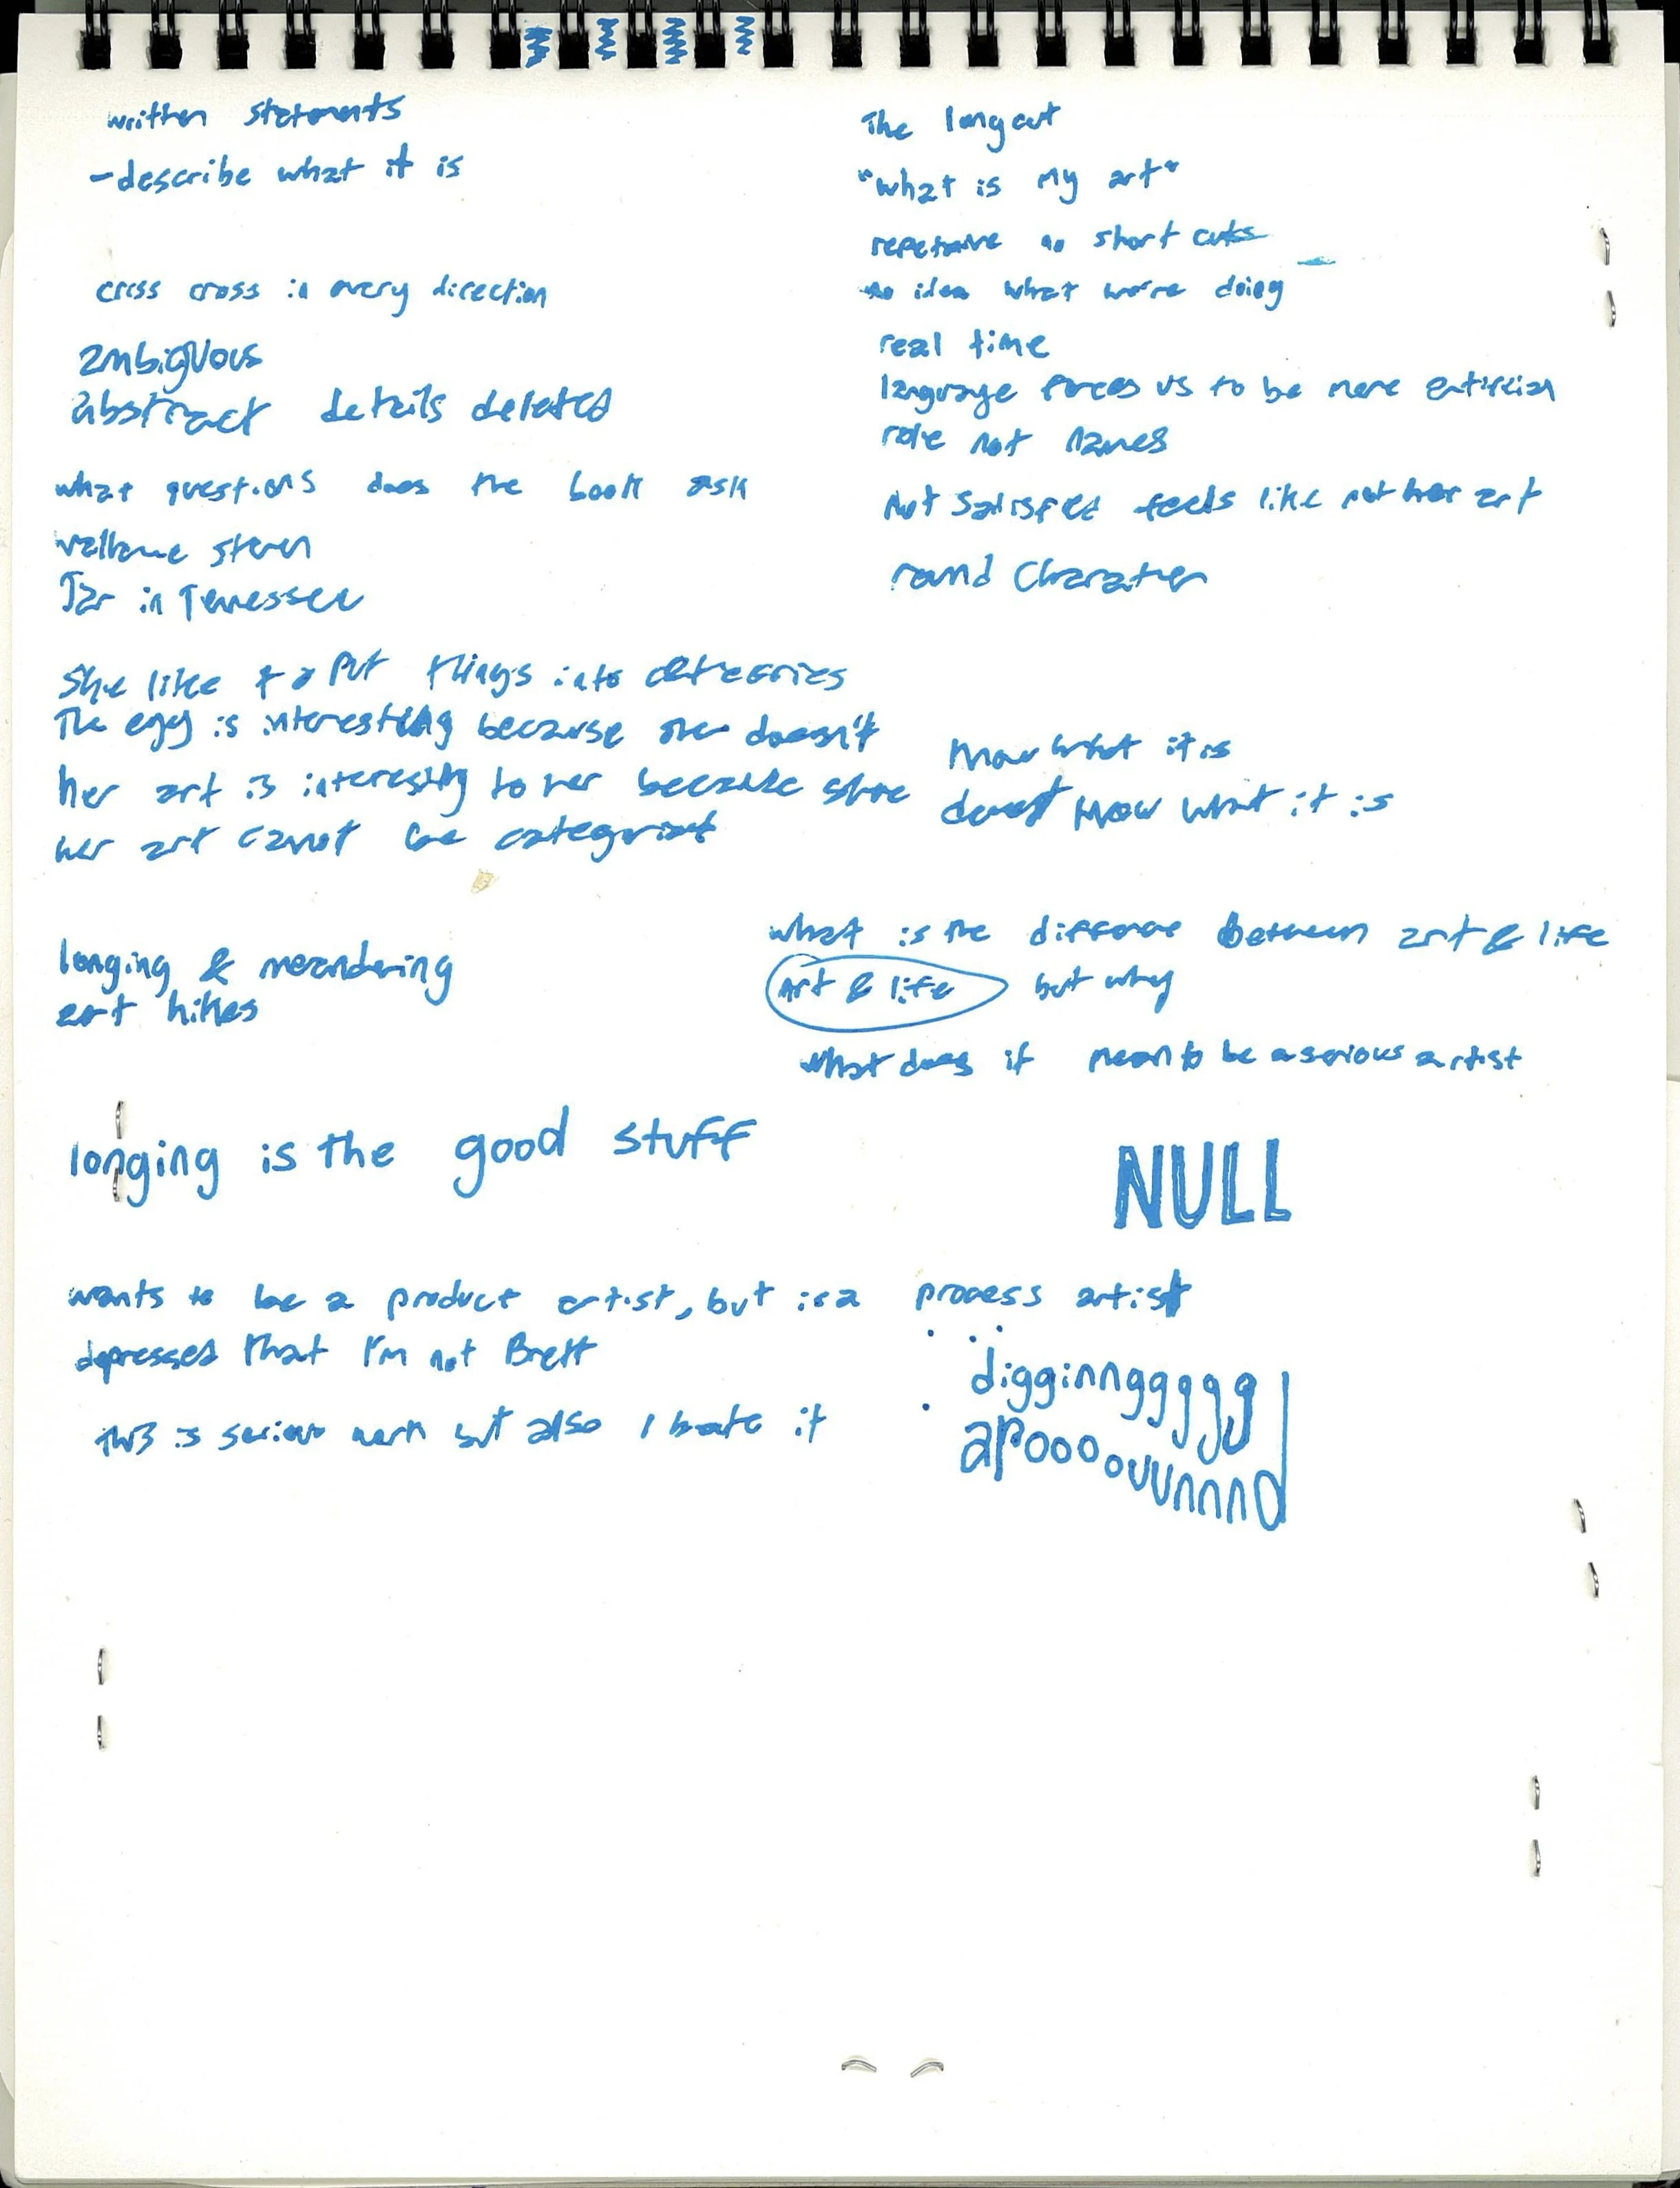 written statements
-describe what it is
criss cross in every direction
ambiguous
abstract details deleted
what questions does the book ask
Jar in Tenessee
The long cut
"what is my art"
no short cuts
no idea what we're doing
real time
language forces us to be more
role not names
Not satisfied feels like not her art
round Character
she like to put things into
The egg is interesting because she doesn't know what it is
her art is interesting to her because she doesnt know what it is
her art cannot be
longing & meandering
art hikes
what is the difference between art & life
Art & life but why
what does it mean to be a serious artist
longing is the good stuff
NULL
wants to be a product artist, but is a process artist
depressed that I'm not Brett
this is serious work but also I hate it
digginnggggg
apoooouuunnnnd